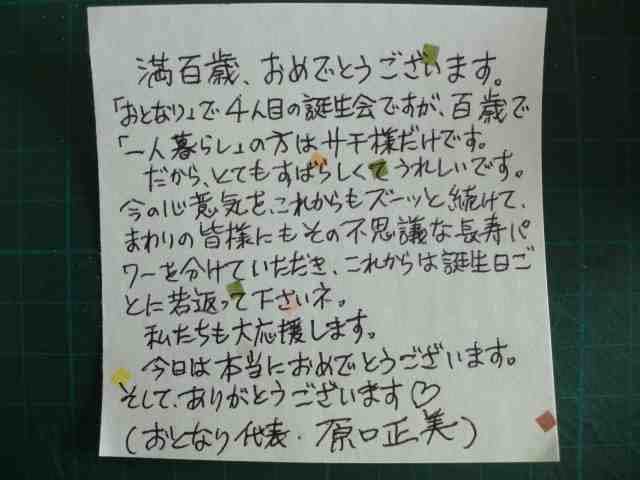 満百歳、おめでとうございます。
「おとなり」で4人目の誕生会ですが、百歳で
「一人暮らし」の方はサチ様だけです。
だから、とてもすばらしくてうれしいです。
今の心意気を、これからもズーッと続けて、
まわりの皆様にもその不思議な長寿パ
ワーを分けていただき、これからは誕生日ご
とに若返って下さいネ。
私たちも大応援します。
今日は本当におめでとうございます。
そして、ありがとうございます♡
(おとなり代表・原口正美)